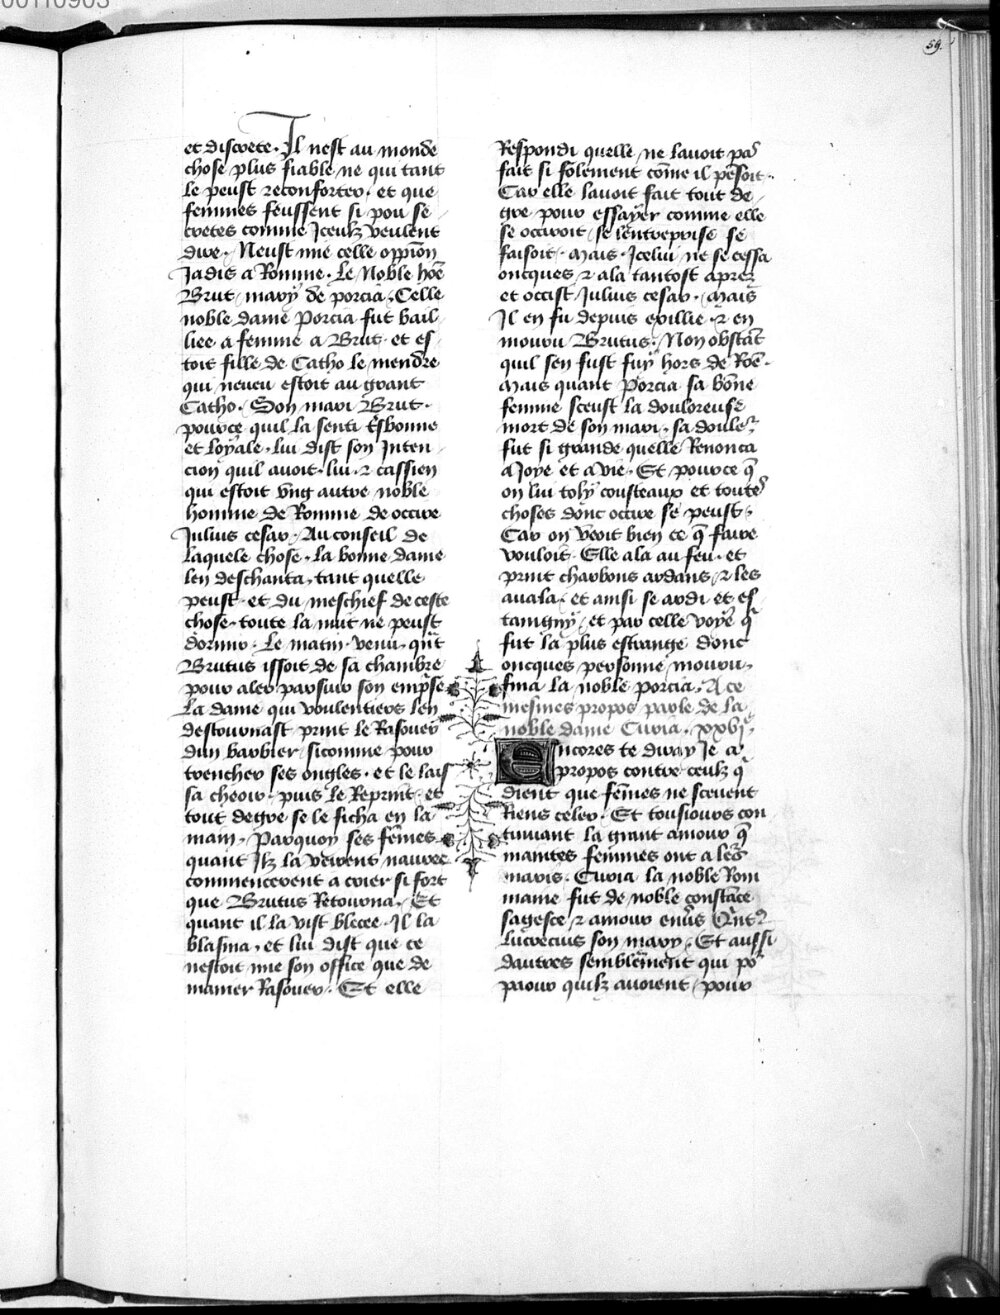 00110903
59.
et discrete. Il nest au monde
chose plus fiable, ne qui tant
le peust reconforter. et que
femmes feussent si pou se
cretes comme Iceulz veulent
dire. Neust mie celle oppion̄
Jadis a Romme. Le Noble hōe
Brut mary de porcia. Celle
noble dame Porcia fut bail
liee a femme a Brut. et es
toit fille de Catho le mendre
qui neueu estoit au grant
Catho. Son mari Brut.
pource quil la senti tsbonne
et loyale. lui dist son Inten
cion quil auoit. lui. ⁊ cassien
qui estoit vng autre noble
homme de Romme de occire
Julius cesar. Au conseil de
laquele chose. la bonne dame
len deschanta, tant quelle
peust. et du meschief de ceste
chose. toute la nuit ne peust
dormir. Le matin. venu. qnt
Brutus issoit de sa chambre
pour aler parsuir son emp̄se
La dame qui voulentiers len
destournast print le Rasouer
dun barbier, sicomme pour
trencher ses ongles. et le lais
sa cheoir. puis le Reprint. et
tout degre se le ficha en la
main. Parquoy ses fēmes.
quant Ilz la veirent nauree
commencerent a crier si fort
que Brutus Retourna. Et
quant il la vist blecee. Il la
blasma, et lui dist que ce
nestoit mie son office que de
manier Rasouer. Et elle
Respondi quelle ne lauoit pas
fait si folement cōme il pēsoit.
Car elle lauoit fait tout de
gre pour essayer comme elle
se occiroit, se lentreprise se
faisoit. Mais. Icelui ne se cessa
oncques ⁊ ala tantost aprez
et occist Julius cesar. Mais
Il en fu depuis exillie. ⁊ en
mouru Brutus. Non obstāt
quil sen fust fuy hors de Rōe.
Mais quant Porcia sa bōne
femme sceust la douloreuse
mort de son mari. sa douleʳ
fut si grande quelle Renonca
a Joye et a vie. Et pource q̄
on lui toly cousteaux et toutes
choses donc occire se peust.
Car on veoit bien ce q̄ faire
vouloit. Elle ala au feu. et
print charbons ardans, ⁊ les
auala. et ainsi se ardi et es
taigny, et par celle voye q̄
fut la plus estrange donc
oncques personne mouru.
fina la noble porcia. A ce
mesmes propos parle de la
noble dame Curia. xxvij.
Encores te diray Je a
propos contre ceulz q̄
dient que fēmes ne sceuent
Riens celer. Et tousiours con
tinuant la grant amour q̄
maintes femmes ont a leʳs
maris. Curia la noble Rom
maine fut de noble constāce
sagesce ⁊ amour enūs Qnt⁊
Lucrecius son mary. Et aussi
dautres semblement qui poʳ
paour quilz auoient, pour